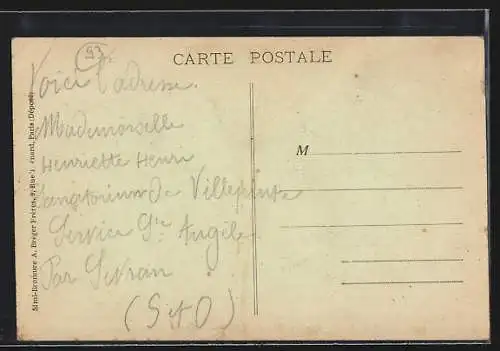 93
CARTE POSTALE
Voici l'adresse.
Mademoiselle
Henriette Henri
Sanatorium de Villepinte
Service Ste Angèle
Par Sevran
(S et O)
M
Mimi-Bromure A. Breger Frères, 9, Rue Paris (Déposé)